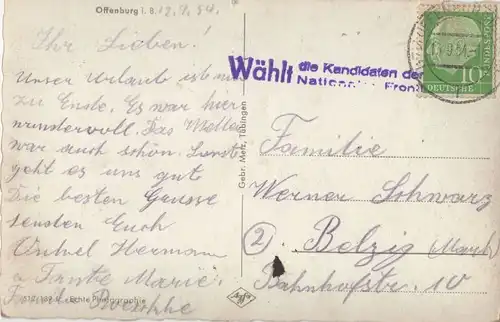 Offenburg i. B. 12.9.54.
Ihr Lieben!
Unser Urlaub ist nun
zu Ende. Es war hier
wundervoll. Das Wetter
war auch schön. Sonst
geht es uns gut
Die besten Grüsse
senden Euch
Onkel Hermann
u. Tante Marie.
Gebr. Metz, Tübingen
Echte Photographie
Wählt die Kandidaten der
Nationalen Front
DEUTSCHE
BUNDESPOST
10
Familie
Werner Schwarz
2 Belzig Mark
Bahnhofstr. 10